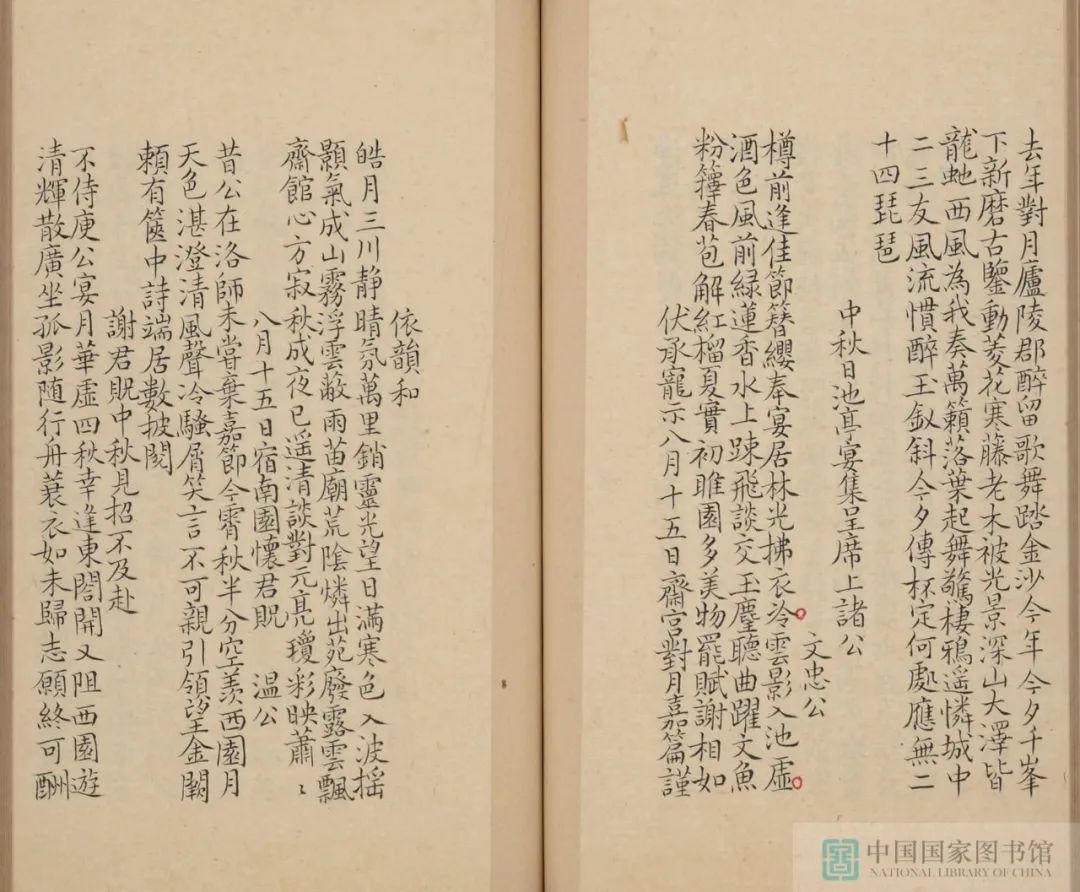 去年對月廬陵郡醉留歌舞踏金沙今年今夕千峯
下新磨古鑒動菱花寒藤老木被光景深山大澤皆
龍虵西風為我奏萬籟落葉起舞驚棲鴉遥憐城中
二三友風流慣醉玉釵斜今夕傳杯定何處應無二
十四琵琶
中秋日池亭宴集呈席上諸公
文忠公
樽前逢佳節簪纓奉宴居林光拂衣冷雲影入池虛
酒色風前緑蓮香水上踈飛談交玉麈聽曲躍文魚
粉籜春苞解紅榴夏實初睢園多美物罷賦謝相如
伏承寵示八月十五日齋宮對月嘉篇謹
依韻和
皓月三川静晴氛萬里銷靈光望日滿寒色入波摇
顥氣成山霧浮雲敝雨苗廟荒陰燐出苑廢露雲飄
齋館心方寂秋成夜已遥清談對元亮瓊彩映蕭〻
八月十五日宿南園懷君貺 温公
昔公在洛師未嘗棄嘉節今霄秋半分空羨西園月
天色湛澄清風聲冷騷屑笑言不可親引領望金闕
頼有篋中詩端居數披閲
謝君貺中秋見招不及赴
不侍庾公宴月華虛四秋幸逢東閤開又阻西園遊
清輝散廣坐孤影随行舟蓑衣如未歸志願終可酬
中国国家图书馆
NATIONAL LIBRARY OF CHINA